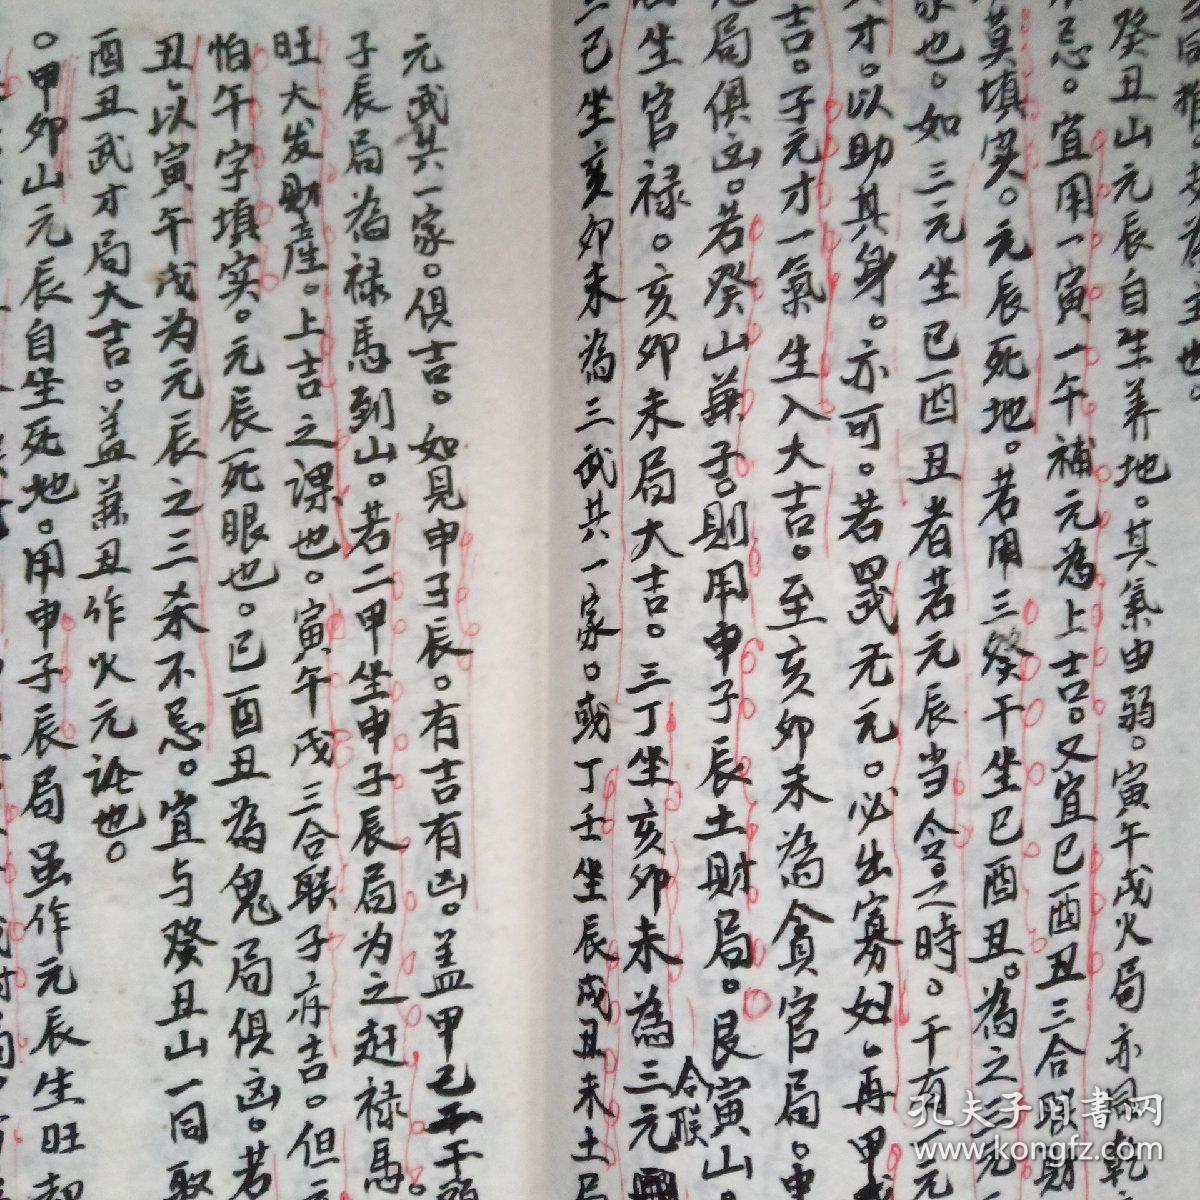 癸丑山元辰自生养地。其氣由弱。寅午戌火局亦同乾
忌。宜用一寅一午補元為上吉。又宜巳酉丑三合联財
莫填实。元辰死地。若用三癸干坐巳酉丑。為之三元
家也。如三元坐巳酉丑者若元辰当令之時。干有元
才。以助其身。亦可。若四武无元。必出寡妇。再甲戌
吉。子元才一氣生入大吉。至亥卯未為貪官局。申
局俱凶。若癸山兼子。則用申子辰土財局。艮寅山。
坐官禄。亥卯未局大吉。三丁坐亥卯未為三元合联
三己坐亥卯未為三武共一家。或丁壬坐辰戌丑未土局
元武共一家。俱吉。如見申子辰。有吉有凶。盖甲己干
子辰局為禄馬到山。若二甲坐申子辰局为之赶禄馬。
旺大发財產。上吉之課也。寅午戌三合联子亦吉。但
怕午字填实。元辰死眼也。巳酉丑為鬼局俱凶。若
丑。以寅午戌为元辰之三杀不忌。宜与癸丑山一同取
酉丑武才局大吉。盖兼丑作火元论也。
。甲卯山元辰自坐死地。用申子辰局虽作元辰生旺
孔夫子旧書网
www.kongfz.com